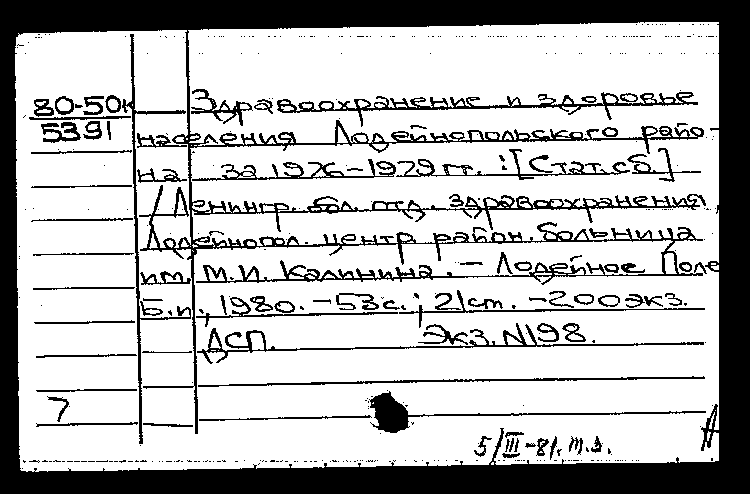 80-50к Здравоохранение и здоровье
5391 населения Лодейнопольского райо-
на за 1976-1979 гг. : [Стат. сб.]
/ Ленингр. обл. отд. здравоохранения,
Лодейнопол. центр. район. больница
им. М.И. Калинина. - Лодейное Поле
Б.и., 1980. - 53 с.; 21 cm. - 200 экз.
ДСП. Экз. N198.
7
5/III-81. т.з.